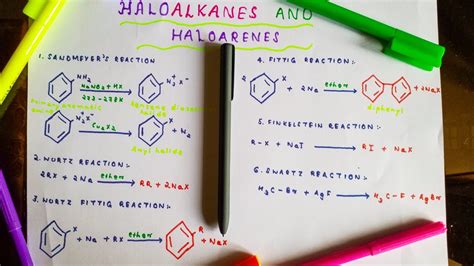 HALOALKANES AND
HALOARENES
1. SANDMEYER'S REACTION
NH₂
NaNO₂ + HX
273 - 278K
N₂⁺X⁻
Primary aromatic
amine
Benzene diazonium
halide
N₂⁺X⁻
Cu₂X₂
X
+ N₂
Aryl halide
2. WURTZ REACTION:-
2RX + 2Na ether RR + 2NaX
3. WURTZ FITTIG REACTION:-
X
+ Na + RX ether
R
+ 2NaX
4. FITTIG REACTION:-
2
X
+ 2Na ether
+ 2NaX
diphenyl
5. FINKELSTEIN REACTION:-
R-X + NaI → RI + NaX
6. SWARTZ REACTION:-
H₃C-Br + AgF → H₃C-F + AgBr